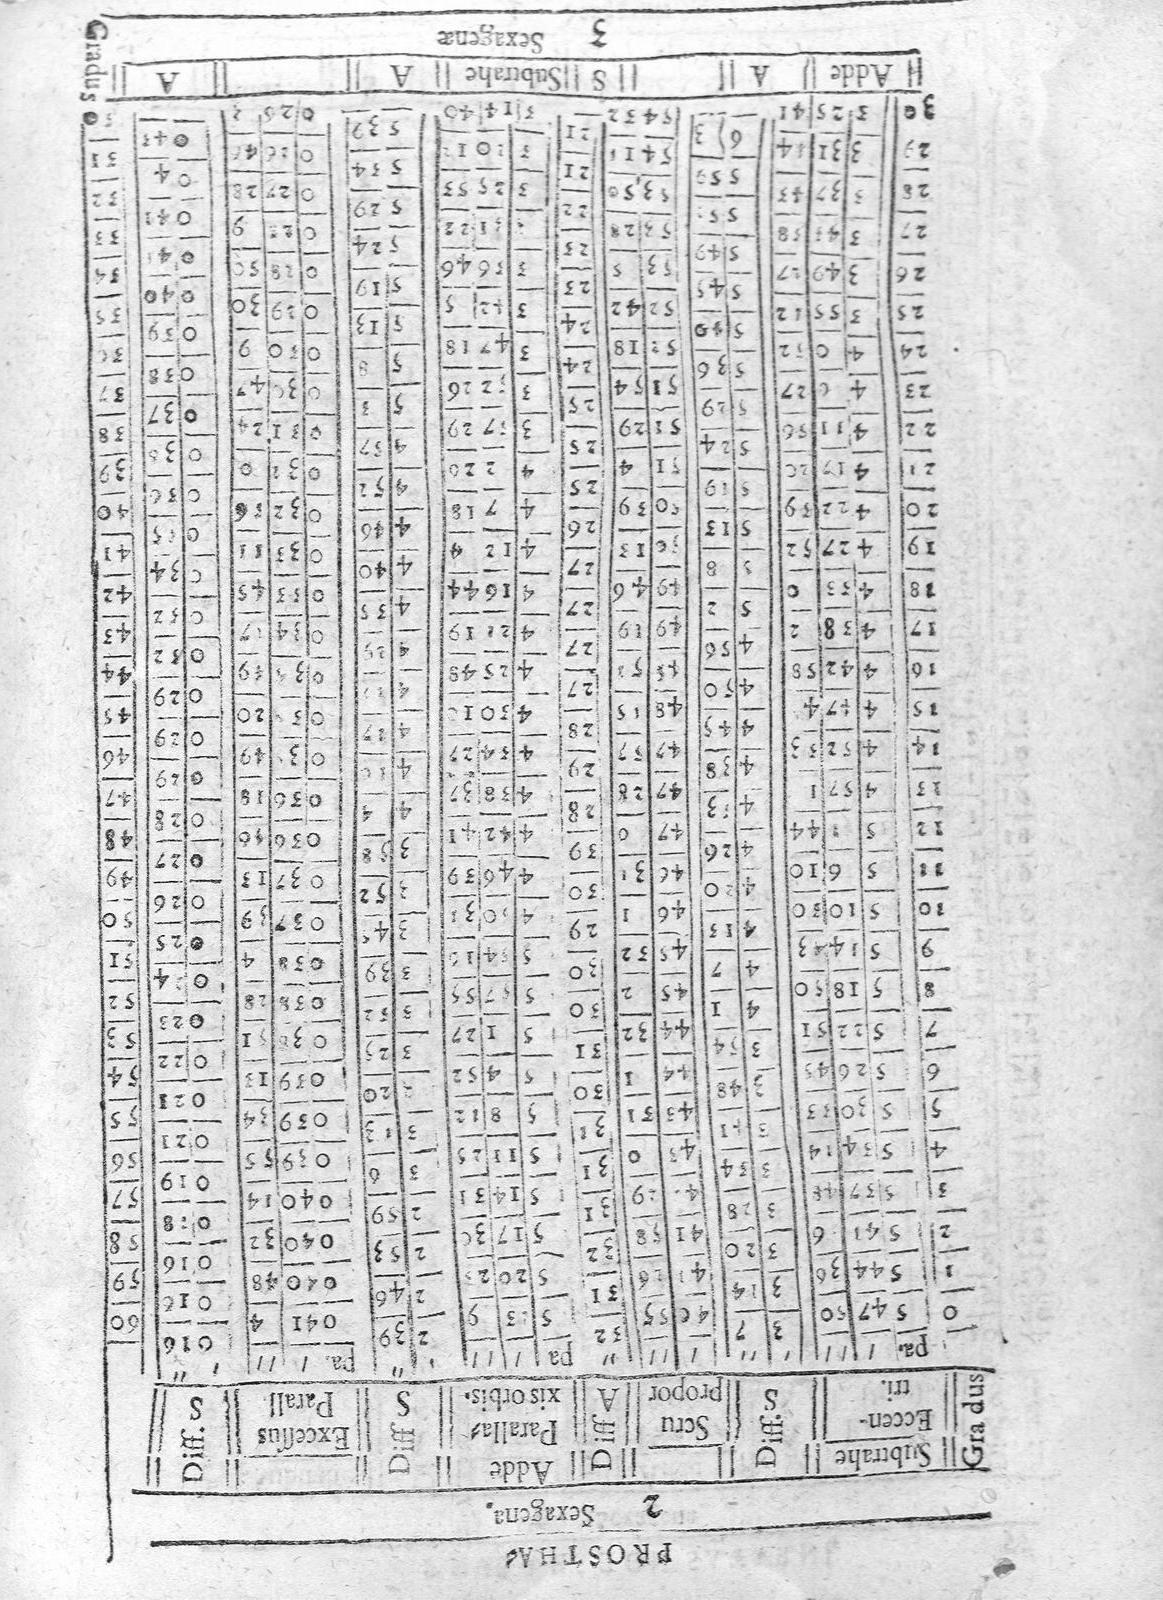 PROSTHA=
2 Sexagena.
Gradus Subtrahe Eccentri. Diff. S Scru propor Diff A Adde Parallaxis orbis. Diff S Excessus Parall. Diff. S
pa. ′ ″ ′ ″ ′ ″ ″ pa ′ ″ ′ ″ pa. ′ ″ ′ ″
0 5 47 50 3 7 40 55 32 5 23 9 2 39 0 41 4 0 16 60
1 5 44 36 3 14 41 26 31 5 20 23 2 46 0 40 48 0 16 59
2 5 41 6 3 20 41 58 32 5 17 30 2 53 0 40 32 0 16 58
3 5 37 48 3 28 29 31 5 14 31 2 59 0 40 14 0 18 57
4 5 34 14 3 34 43 0 31 5 11 25 3 6 0 39 55 0 19 56
5 5 30 33 3 41 43 31 31 5 8 12 3 13 0 39 34 0 21 55
6 5 26 45 3 48 44 1 30 5 4 52 20 0 39 13 0 21 54
7 5 22 51 3 54 44 32 31 5 1 27 3 25 0 38 51 0 22 53
8 5 18 50 4 1 45 2 30 5 57 55 3 32 0 38 28 0 23 52
9 5 14 43 4 7 45 32 30 5 54 16 3 39 0 38 4 0 24 51
10 5 10 30 4 13 46 1 29 4 50 31 3 45 0 37 39 0 25 50
11 5 6 10 4 20 46 31 30 4 46 39 3 52 0 37 13 0 26 49
12 5 1 44 4 26 47 0 39 4 42 41 3 58 0 36 46 0 27 48
13 4 57 1 4 33 47 28 28 4 38 37 4 4 0 36 18 0 28 47
14 4 52 33 4 38 47 57 29 4 34 27 4 10 0 49 0 29 46
15 4 47 4 4 45 48 15 28 4 30 10 4 17 0 20 0 29 45
16 4 42 58 4 50 48 52 27 4 25 48 4 0 34 49 0 29 44
17 4 38 2 4 56 49 19 27 4 21 19 4 29 0 34 17 0 32 43
18 4 33 0 5 2 49 46 27 4 16 44 4 35 0 33 45 0 32 42
19 4 27 52 5 8 50 13 27 4 12 4 4 40 0 33 11 0 34 41
20 4 22 39 5 13 50 39 26 4 7 18 4 46 0 32 36 0 35 40
21 4 17 20 5 19 51 4 25 4 2 26 4 52 0 32 0 0 36 39
22 4 11 56 5 24 51 29 25 3 57 29 4 57 0 31 24 0 36 38
23 4 6 27 5 29 51 54 25 3 52 26 5 3 0 30 47 0 37 37
24 4 0 52 5 36 52 18 24 3 47 18 5 8 0 30 9 0 38 36
25 3 55 12 5 40 52 42 24 3 42 5 5 13 0 29 30 0 39 35
26 3 49 27 5 45 53 5 23 3 36 46 5 19 0 28 50 0 40 34
27 3 43 38 5 49 53 28 23 31 22 5 24 0 28 9 0 41 33
28 3 37 43 5 55 53 50 22 3 25 53 5 29 0 27 28 0 41 32
29 3 31 44 5 59 54 11 21 3 5 34 0 26 0 4 31
30 3 25 41 6 3 54 32 21 3 14 40 5 39 0 26 0 43
Adde A S Subtrahe A A Gradus
3 Sexagenæ